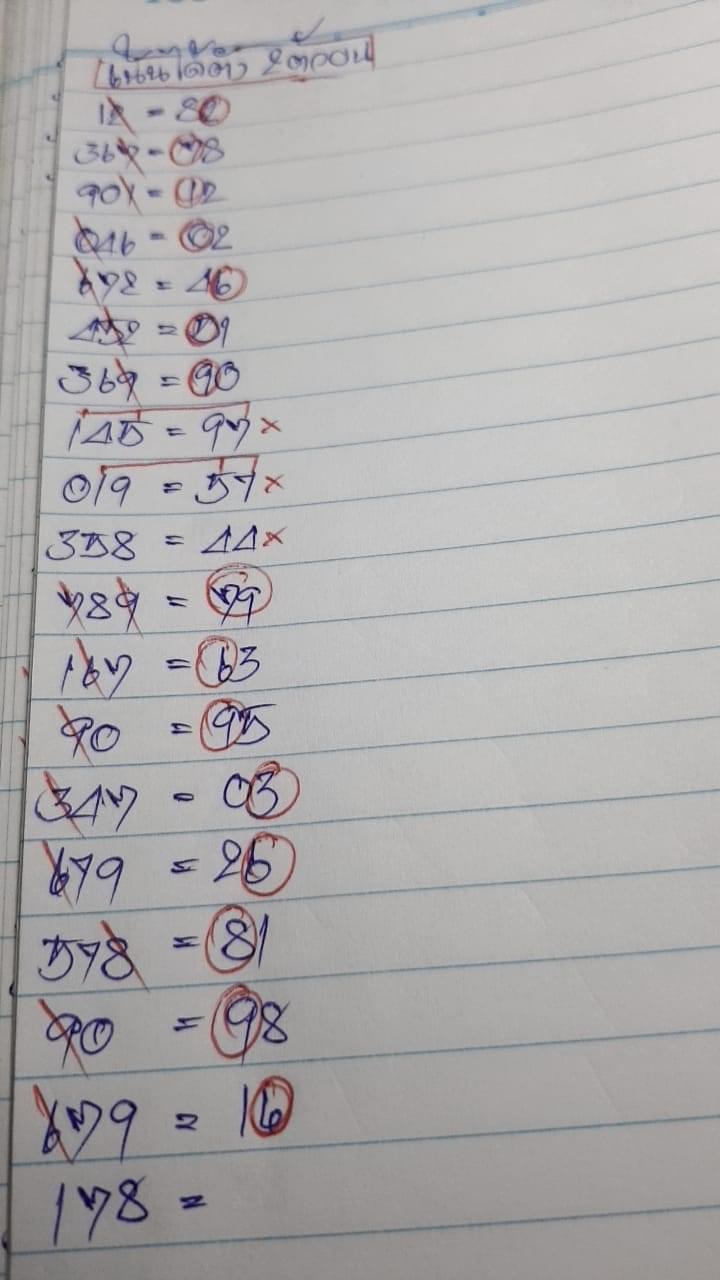 12 = 82
367 = 78
901 = 12
046 = 02
678 = 46
458 = 51
369 = 90
145 = 97 ×
019 = 57 ×
358 = 44 ×
789 = 79
167 = 63
90 = 95
347 = 03
679 = 26
578 = 81
90 = 98
679 = 16
178 =